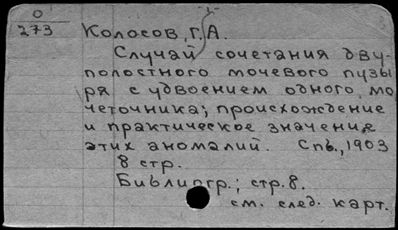 0
273
Колосов, Г.А.
Случай сочетания дву-
полостного мочевого пузы
ря с удвоением одного мо
четочника; происхождение
и практическое значение
этих аномалий. Спб., 1903
8 стр.
Библиогр.; стр. 8.
см. след. карт.